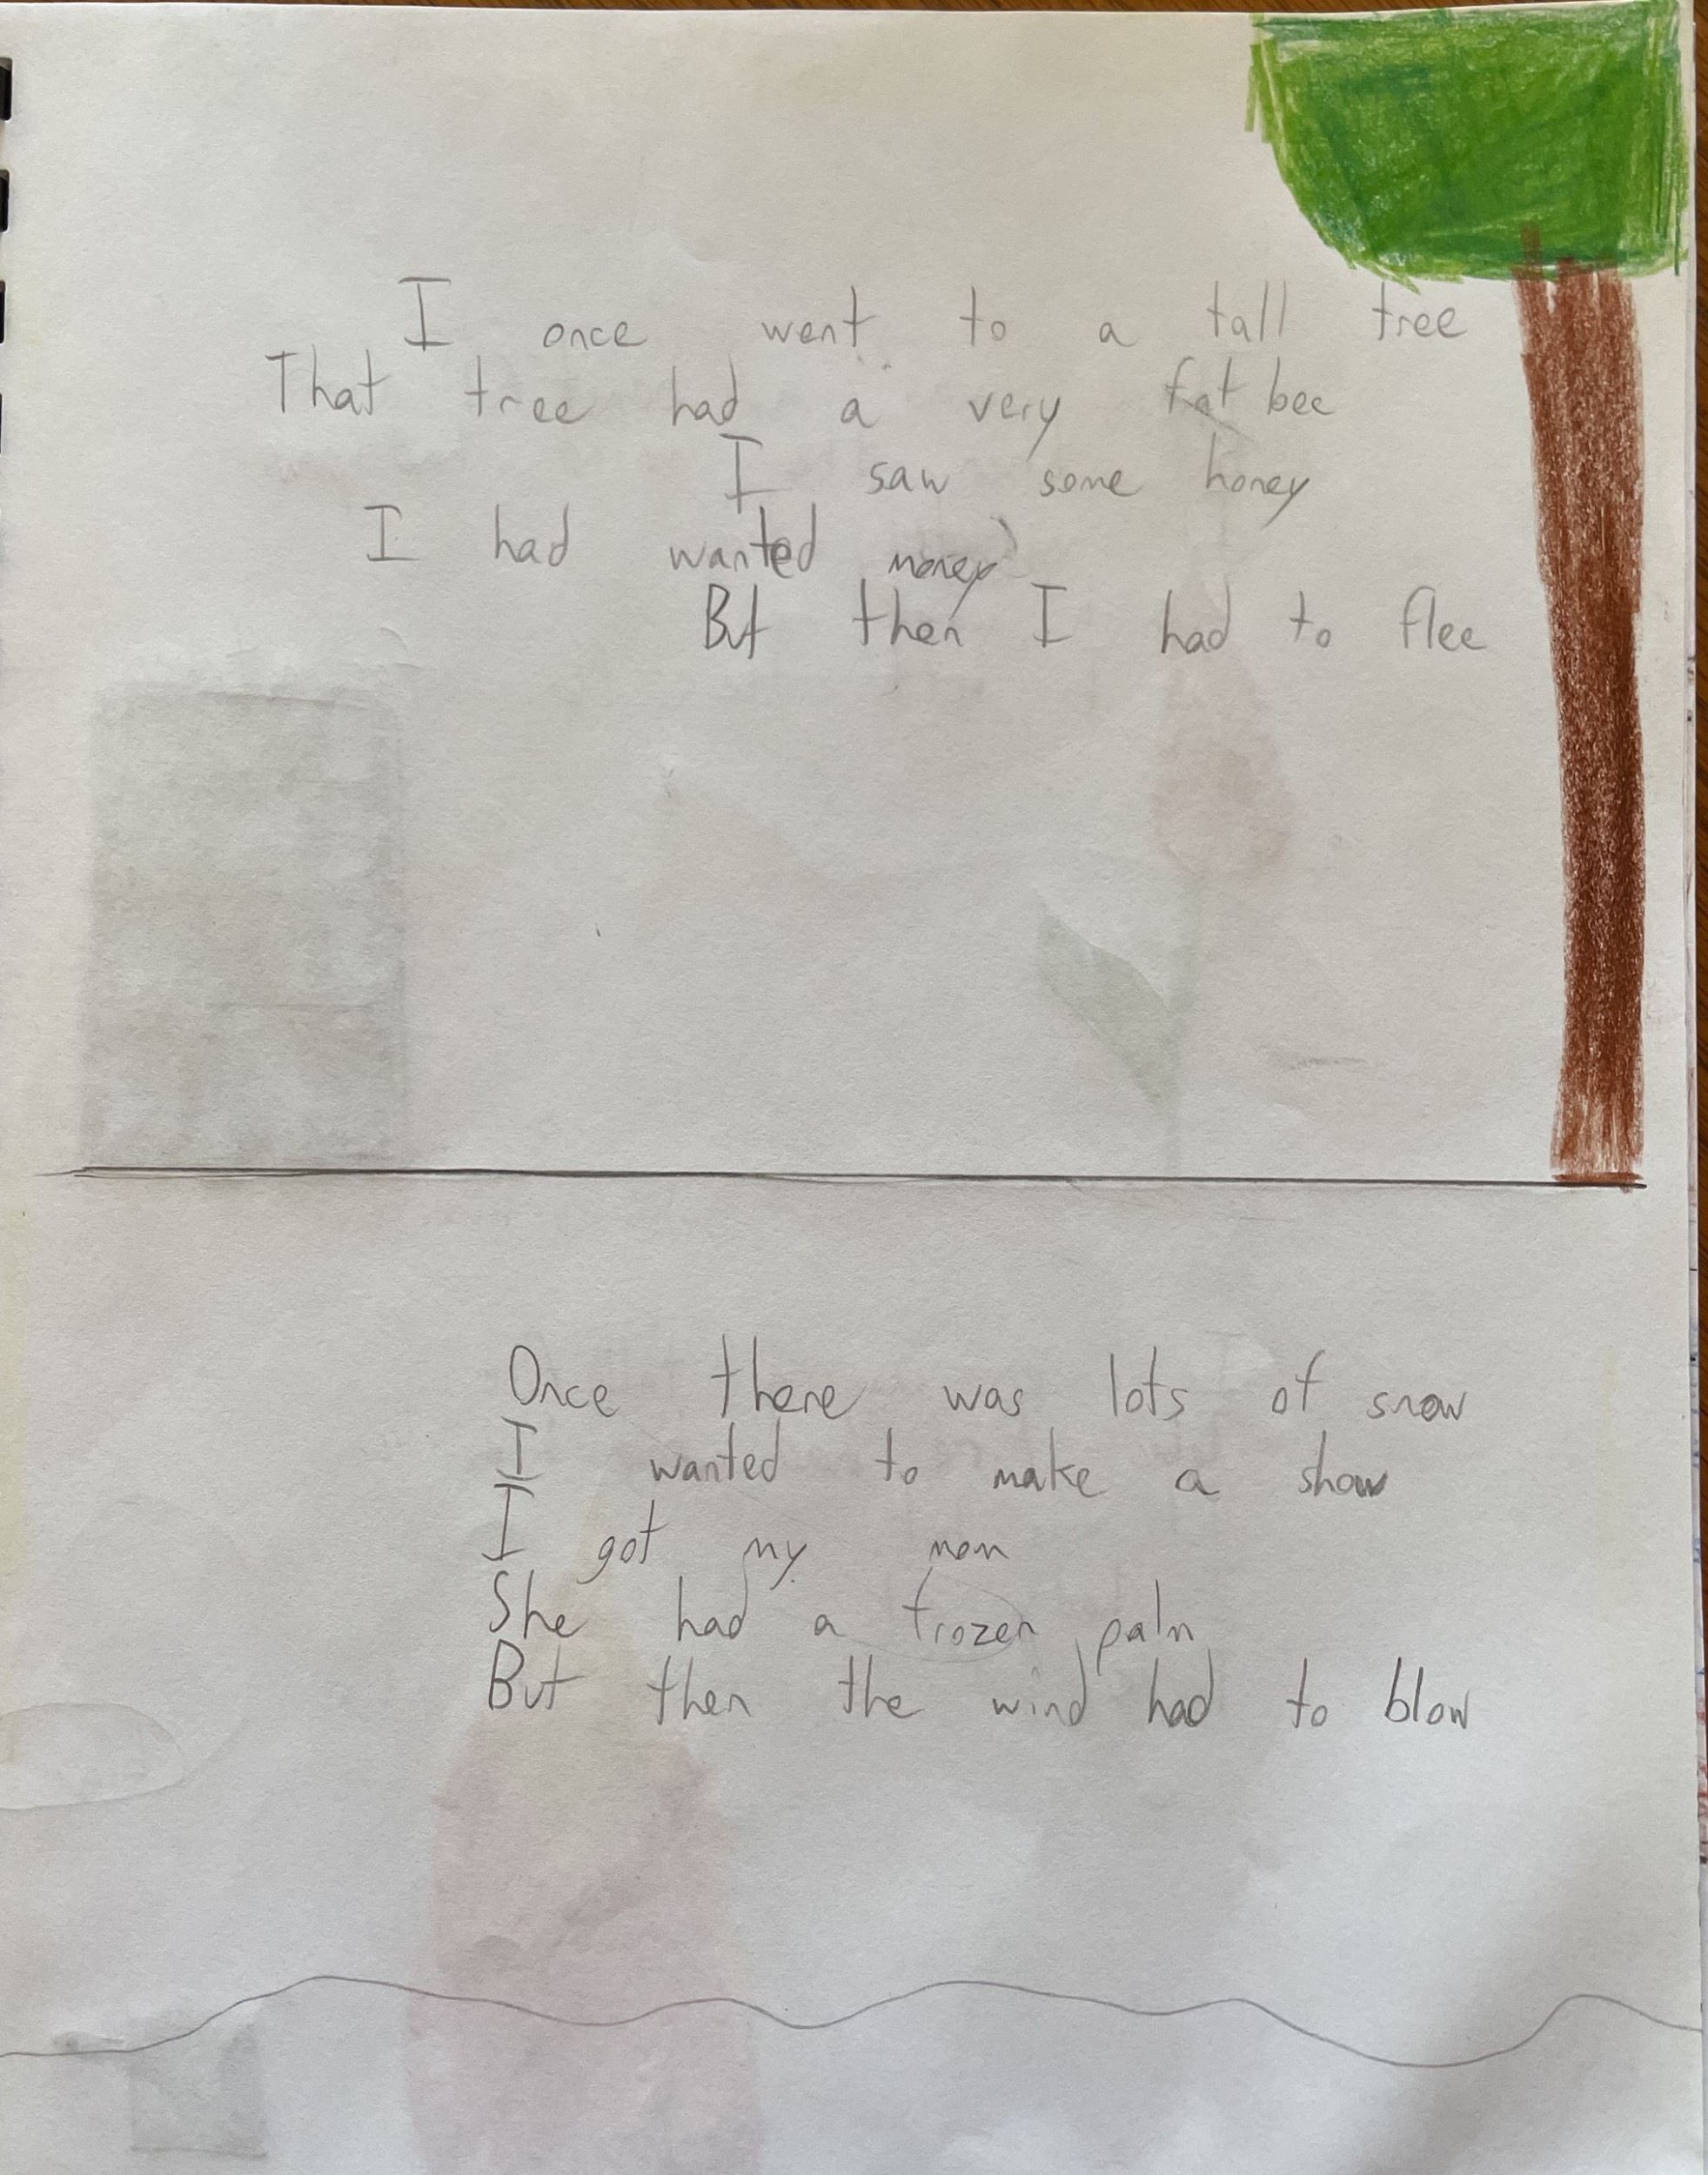 I once went to a tall tree
That tree had a very fat bee
I saw some honey
I had wanted money
But then I had to flee
Once there was lots of snow
I wanted to make a show
I got my mom
She had a frozen palm
But then the wind had to blow